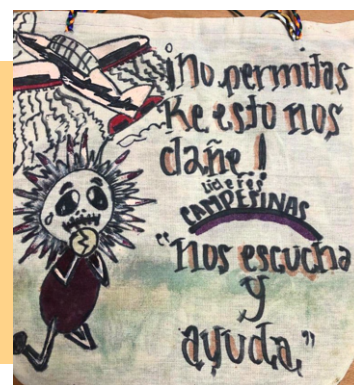 ¡No permitas
Ke esto nos
dañe!
Lideres
CAMPESINAS
"Nos escucha
y
ayuda"